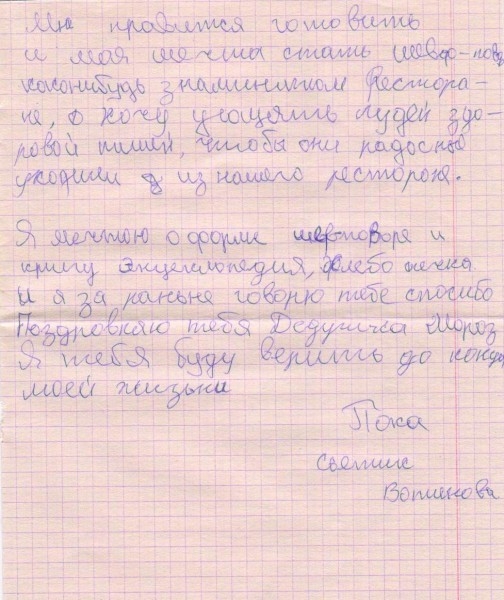 Мне нравится готовить
и моя мечта стать шефф-повор
какомнибудь знаминитом Рестора-
не, я хочу угощять людей здо-
ровой пищей, чтобы они радосные
уходили из нашего ресторона.
Я мечтою о форме шефповоря и
книгу энцеклопедия, хлебо печка.
И я за ранне говорю тебе спосибо
Поздровляю тебя Дедушка Мороз
Я тебя буду верить до конца
моей жизьни
Пока